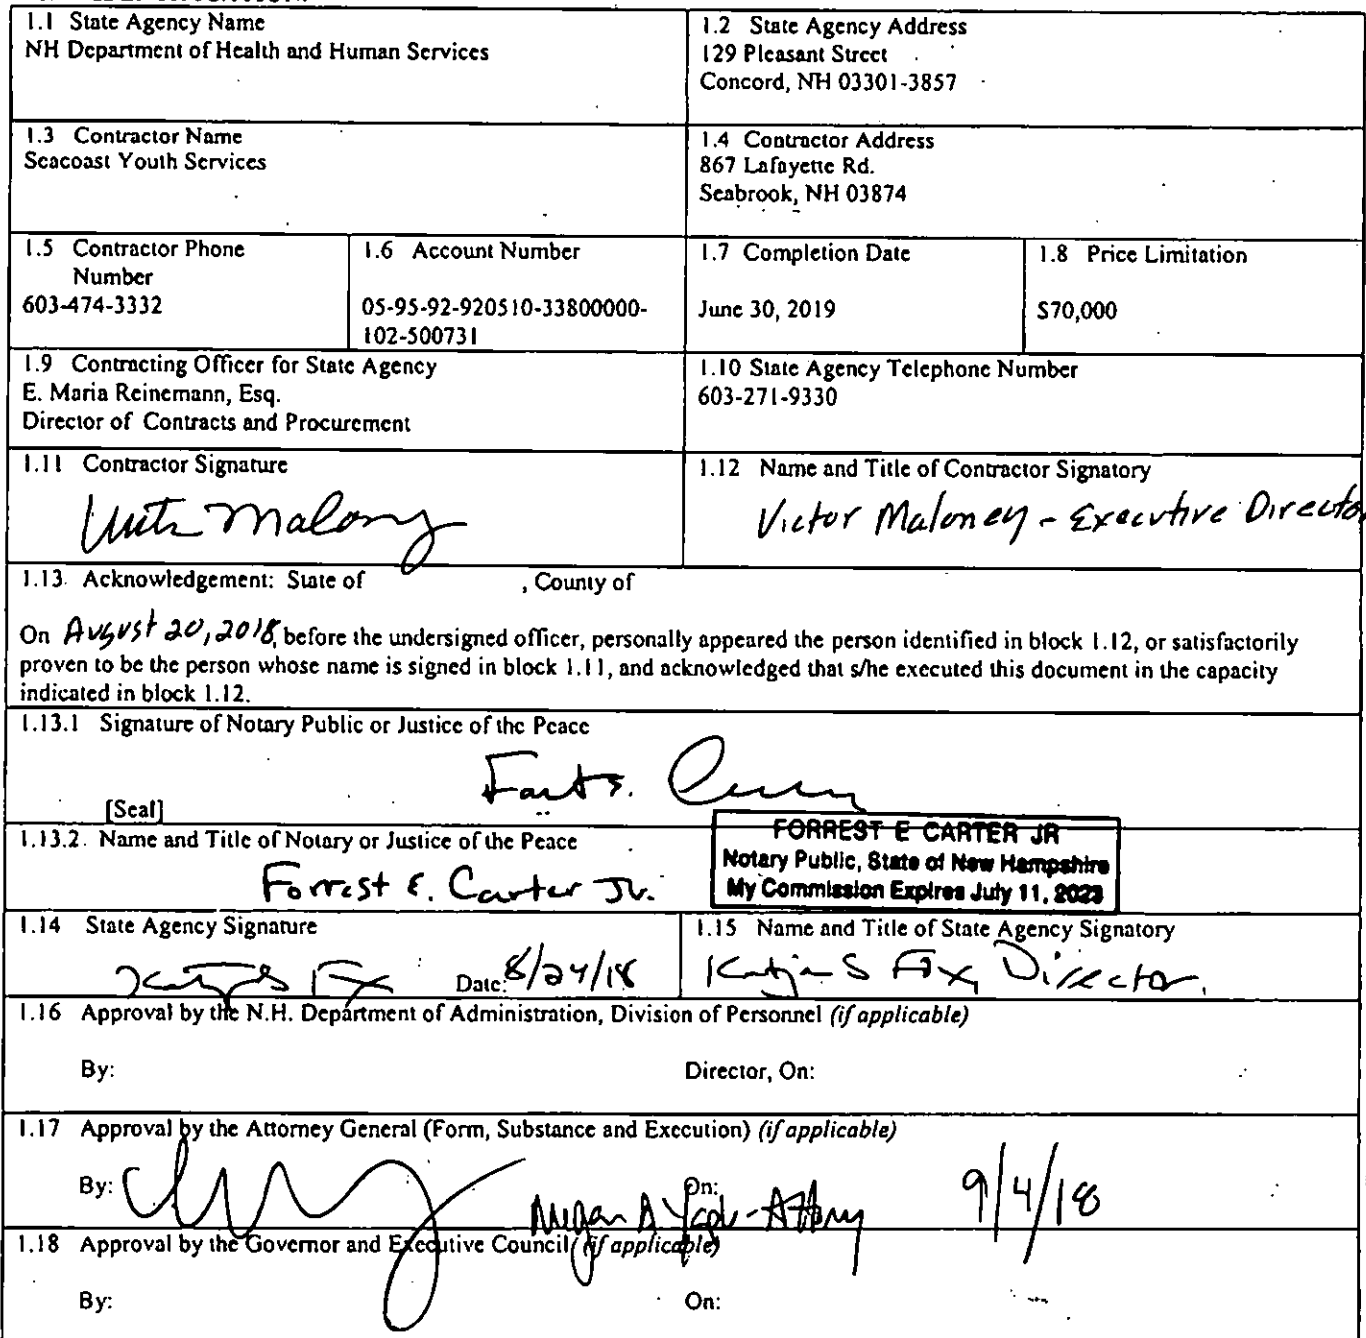 1.1 State Agency Name
NH Department of Health and Human Services
1.2 State Agency Address
129 Pleasant Street
Concord, NH 03301-3857
1.3 Contractor Name
Seacoast Youth Services
1.4 Contractor Address
867 Lafayette Rd.
Seabrook, NH 03874
1.5 Contractor Phone
Number
603-474-3332
1.6 Account Number
05-95-92-920510-33800000-
102-500731
1.7 Completion Date
June 30, 2019
1.8 Price Limitation
$70,000
1.9 Contracting Officer for State Agency
E. Maria Reinemann, Esq.
Director of Contracts and Procurement
1.10 State Agency Telephone Number
603-271-9330
1.11 Contractor Signature
Maloney
1.12 Name and Title of Contractor Signatory
Victor Maloney - Executive Director
1.13 Acknowledgement: State of , County of
On August 20, 2018, before the undersigned officer, personally appeared the person identified in block 1.12, or satisfactorily
proven to be the person whose name is signed in block 1.11, and acknowledged that s/he executed this document in the capacity
indicated in block 1.12.
1.13.1 Signature of Notary Public or Justice of the Peace
[Seal]
1.13.2. Name and Title of Notary or Justice of the Peace
Forrest E. Carter Jr.
FORREST E CARTER JR
Notary Public, State of New Hampshire
My Commission Expires July 11, 2023
1.14 State Agency Signature
Date: 8/24/18
1.15 Name and Title of State Agency Signatory
Katja S Fox, Director.
1.16 Approval by the N.H. Department of Administration, Division of Personnel (if applicable)
By: Director, On:
1.17 Approval by the Attorney General (Form, Substance and Execution) (if applicable)
By: On: 9/4/18
Megan A - Attorney
1.18 Approval by the Governor and Executive Council (if applicable)
By: On: